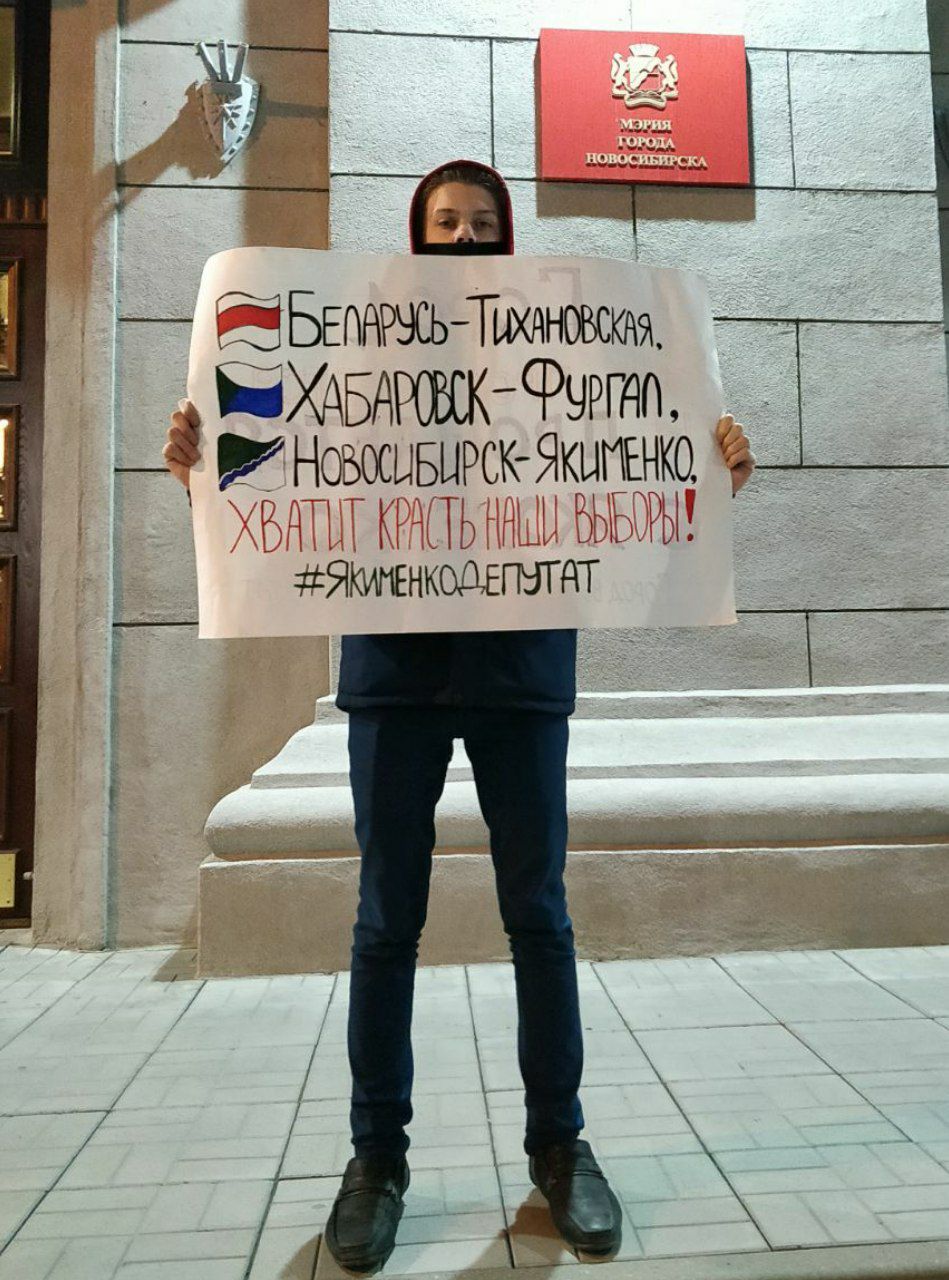 МЭРИЯ
ГОРОДА
НОВОСИБИРСКА
БЕЛАРУСЬ-ТИХАНОВСКАЯ,
ХАБАРОВСК-ФУРГАЛ,
НОВОСИБИРСК-ЯКИМЕНКО,
ХВАТИТ КРАСТЬ НАШИ ВЫБОРЫ!
#ЯКИМЕНКОДЕПУТАТ